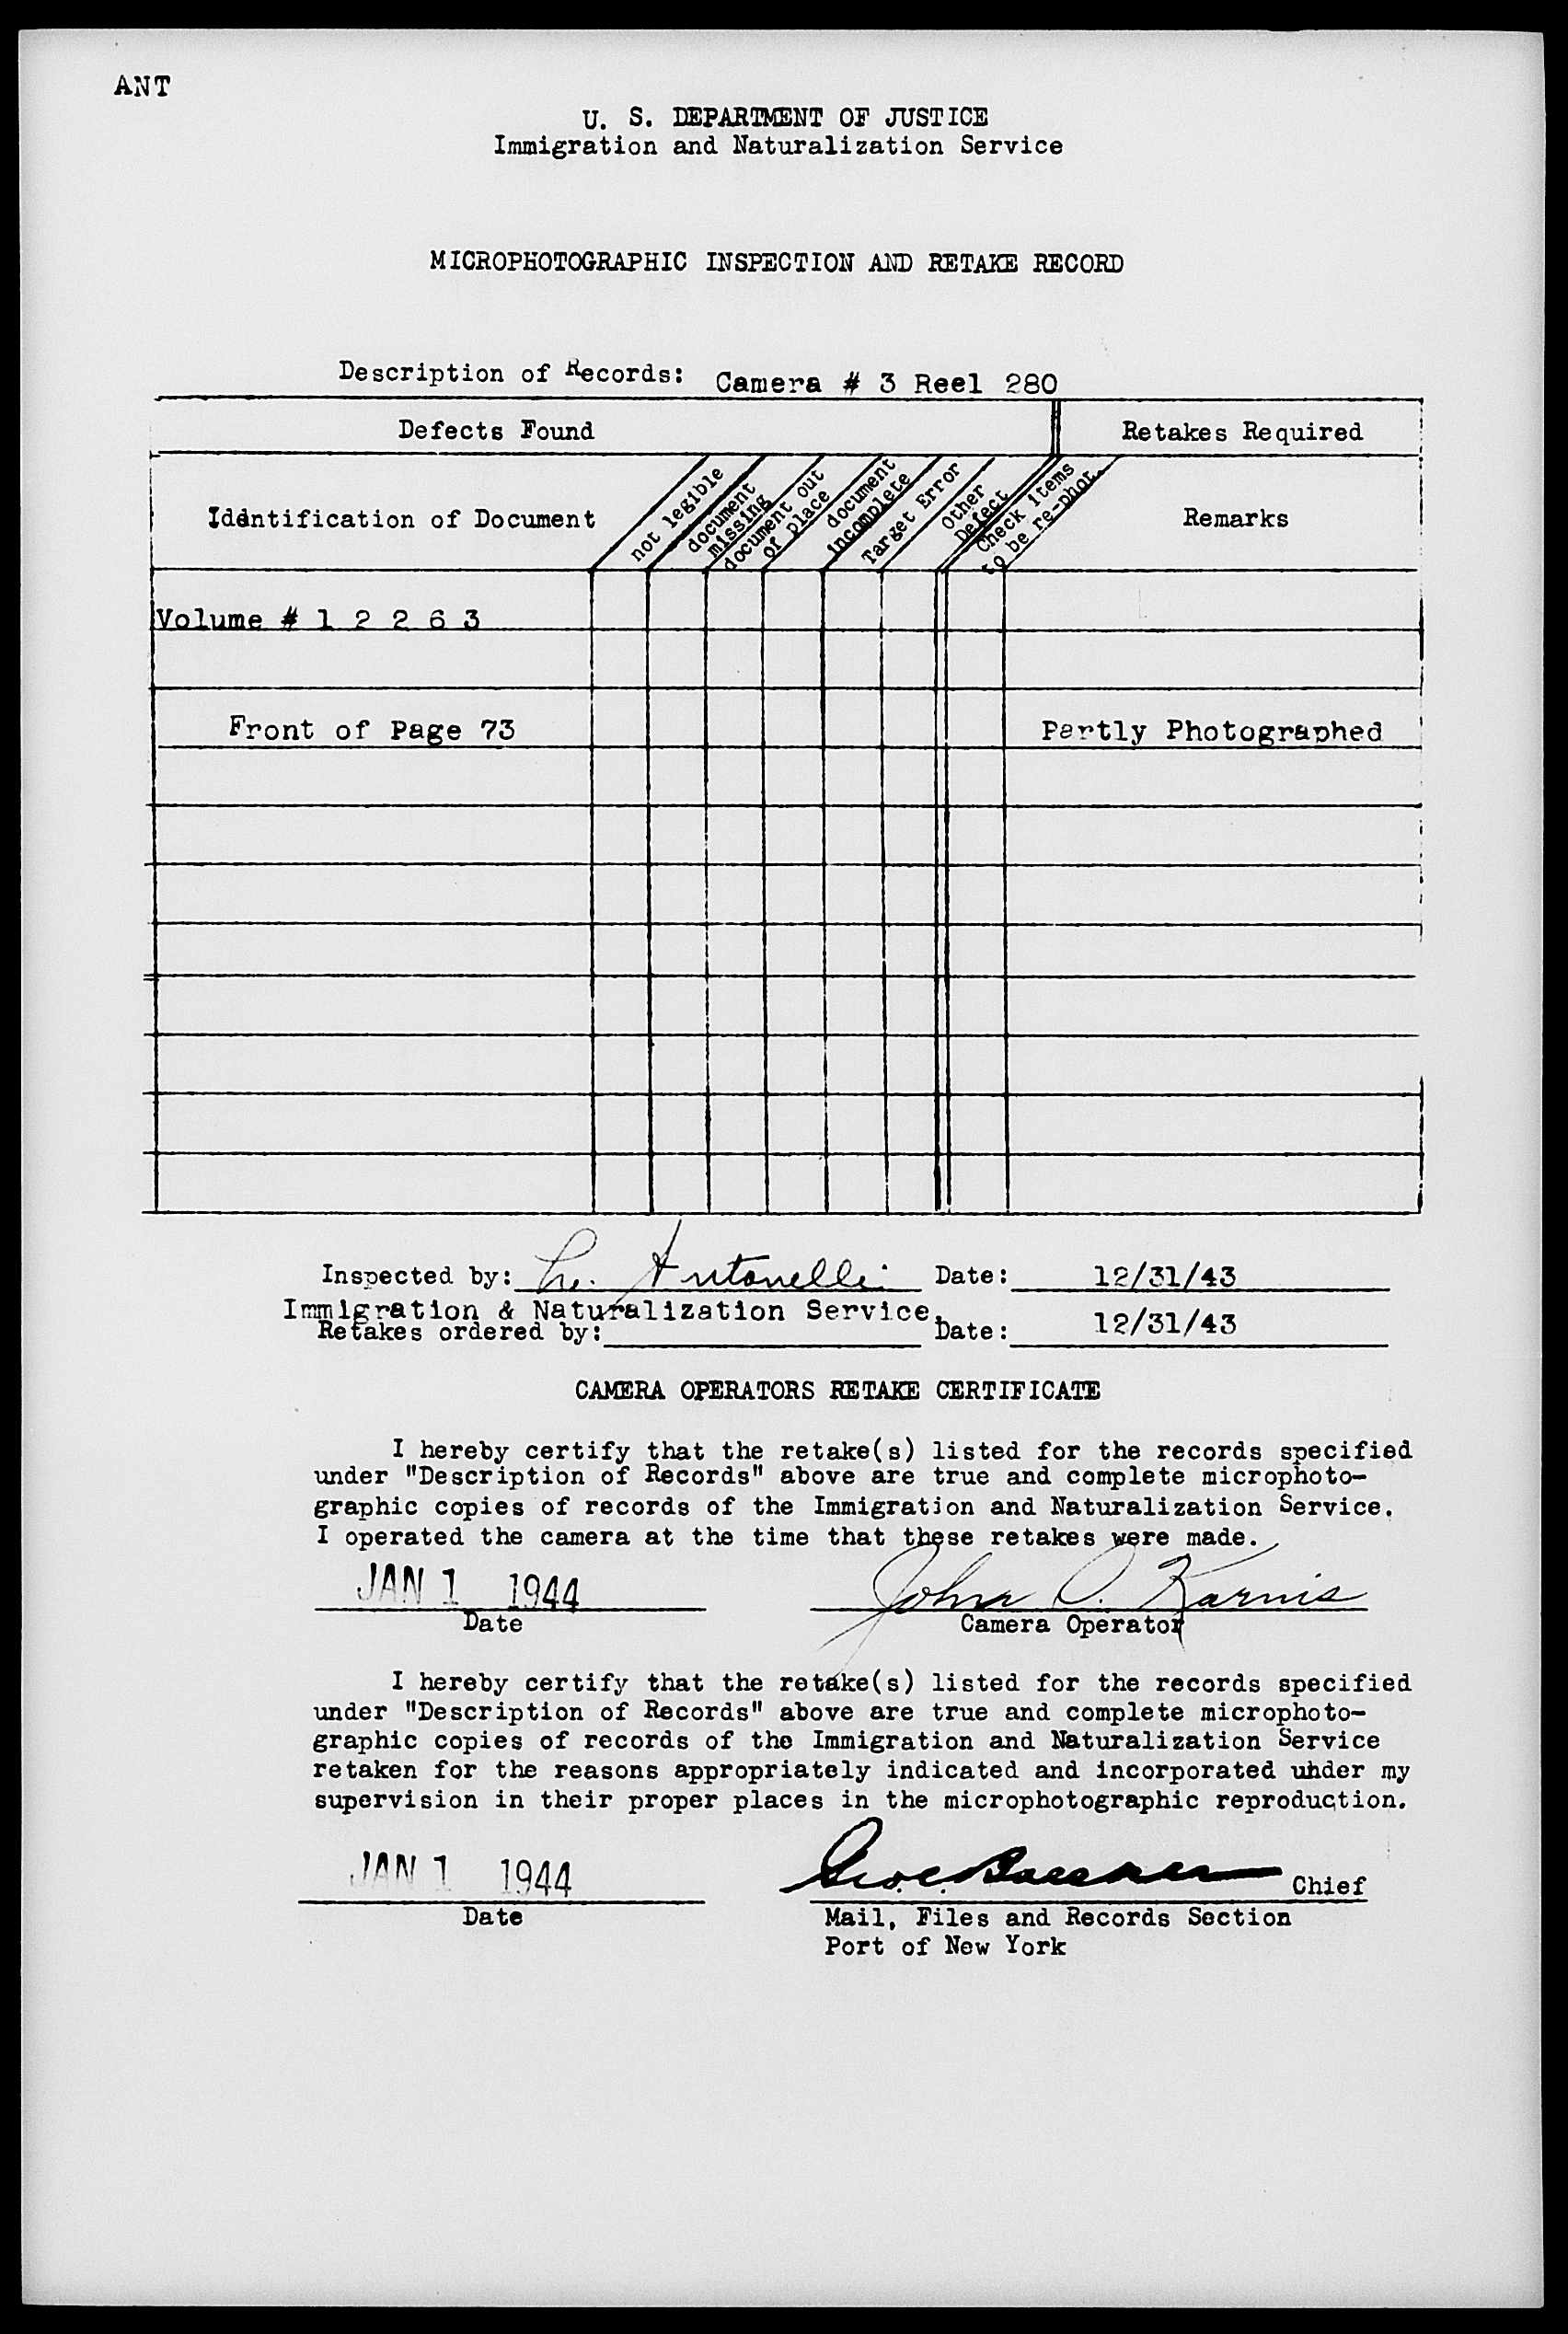 ANT
U. S. DEPARTMENT OF JUSTICE
Immigration and Naturalization Service
MICROPHOTOGRAPHIC INSPECTION AND RETAKE RECORD
Description of Records: Camera # 3 Reel 280
Defects Found
Retakes Required
Identification of Document
not legible
document missing
document out of place
document incomplete
Target Error
Other Defect
Check items to be re-phot.
Remarks
Volume # 1 2 2 6 3
Front of Page 73 Partly Photographed
Inspected by: Antonelli Date: 12/31/43
Immigration & Naturalization Service.
Retakes ordered by: Date: 12/31/43
CAMERA OPERATORS RETAKE CERTIFICATE
I hereby certify that the retake(s) listed for the records specified
under "Description of Records" above are true and complete microphoto-
graphic copies of records of the Immigration and Naturalization Service.
I operated the camera at the time that these retakes were made.
JAN 1 1944 John Karnis
Date Camera Operator
I hereby certify that the retake(s) listed for the records specified
under "Description of Records" above are true and complete microphoto-
graphic copies of records of the Immigration and Naturalization Service
retaken for the reasons appropriately indicated and incorporated uhder my
supervision in their proper places in the microphotographic reproduction.
JAN 1 1944 Chief
Date Mail, Files and Records Section
Port of New York